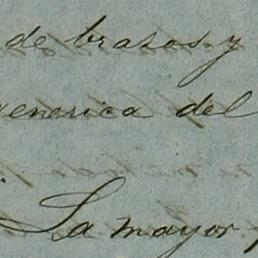 de brasos y
generica del
La mayor